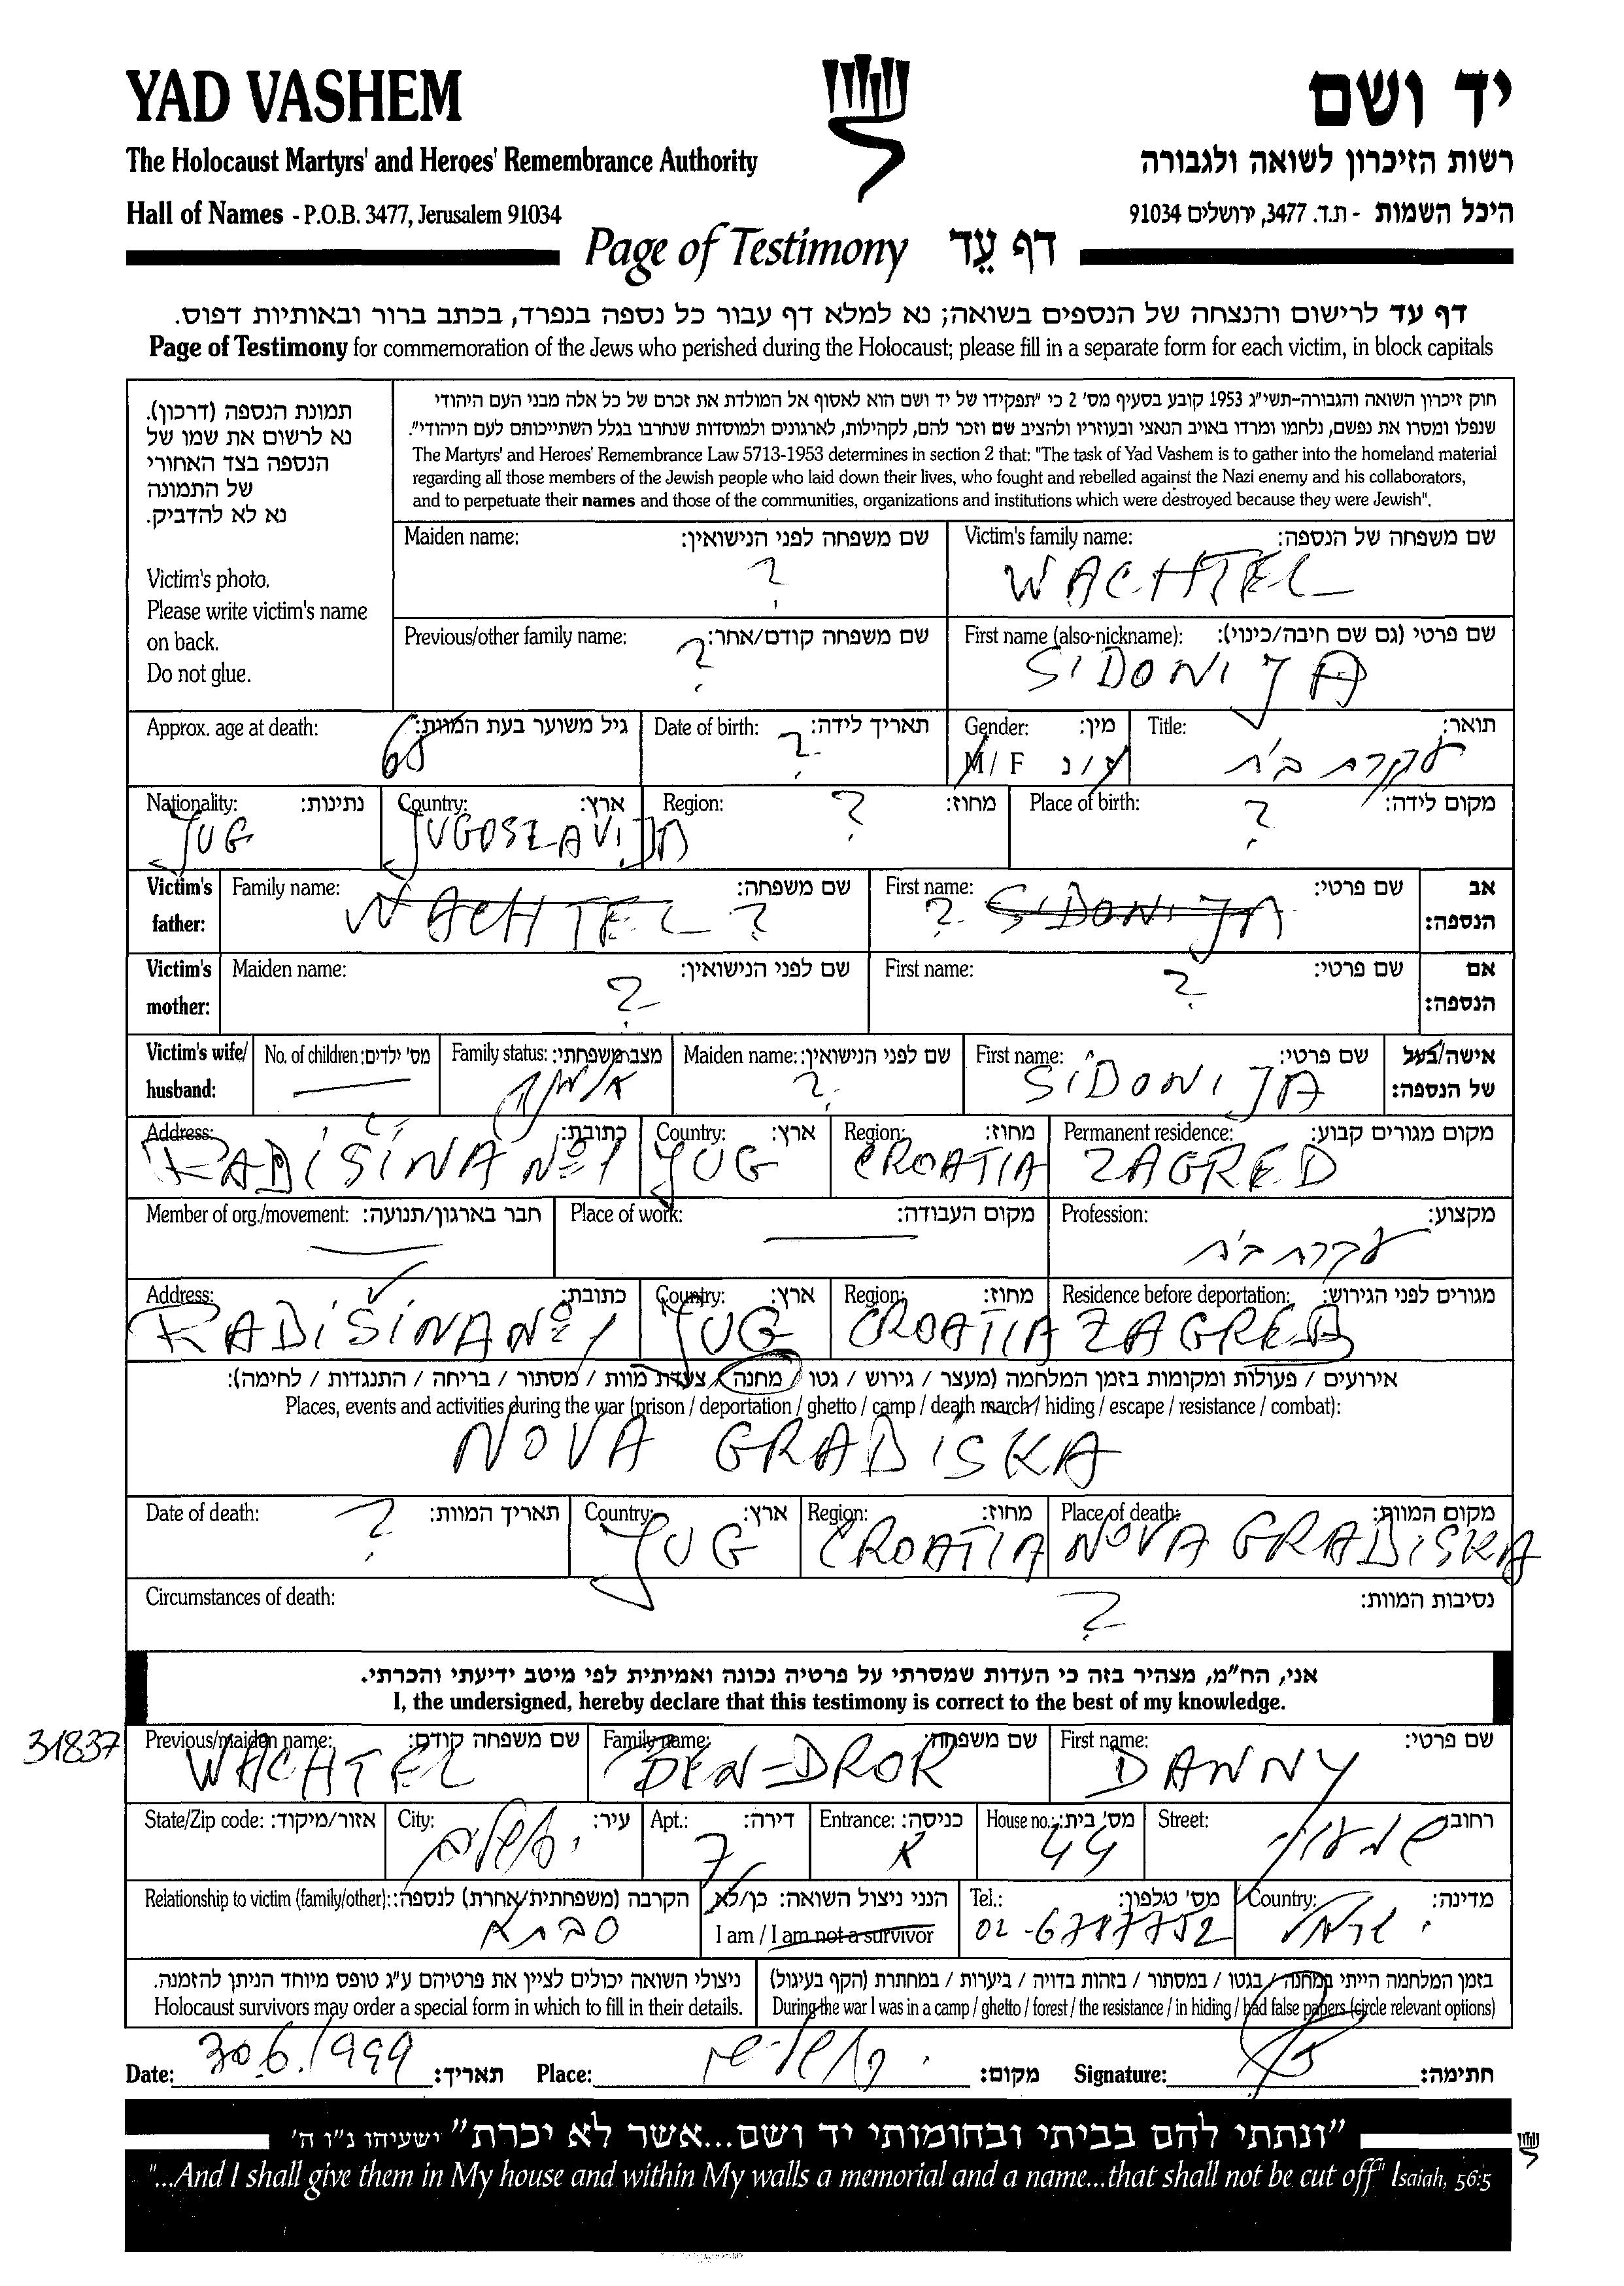 YAD VASHEM
יד ושם
The Holocaust Martyrs' and Heroes' Remembrance Authority
רשות הזיכרון לשואה ולגבורה
Hall of Names - P.O.B. 3477, Jerusalem 91034
היכל השמות - ת.ד. 3477, ירושלים 91034
Page of Testimony דף עֵד
דף עד לרישום והנצחה של הנספים בשואה; נא למלא דף עבור כל נספה בנפרד, בכתב ברור ובאותיות דפוס.
Page of Testimony for commemoration of the Jews who perished during the Holocaust; please fill in a separate form for each victim, in block capitals
תמונת הנספה (דרכון).
נא לרשום את שמו של
הנספה בצד האחורי
של התמונה
נא לא להדביק.
Victim's photo.
Please write victim's name
on back.
Do not glue.
חוק זיכרון השואה והגבורה-תשי"ג 1953 קובע בסעיף מס' 2 כי "תפקידו של יד ושם הוא לאסוף אל המולדת את זכרם של כל אלה מבני העם היהודי
שנפלו ומסרו את נפשם, נלחמו ומרדו באויב הנאצי ובעוזריו ולהציב שם וזכר להם, לקהילות, לארגונים ולמוסדות שנחרבו בגלל השתייכותם לעם היהודי".
The Martyrs' and Heroes' Remembrance Law 5713-1953 determines in section 2 that: "The task of Yad Vashem is to gather into the homeland material
regarding all those members of the Jewish people who laid down their lives, who fought and rebelled against the Nazi enemy and his collaborators,
and to perpetuate their names and those of the communities, organizations and institutions which were destroyed because they were Jewish".
Maiden name: שם משפחה לפני הנישואין: Victim's family name: שם משפחה של הנספה:
? WACHTEL
Previous/other family name: שם משפחה קודם/אחר: First name (also nickname): שם פרטי (גם שם חיבה/כינוי):
? SIDONIJA
Approx. age at death: גיל משוער בעת המוות: Date of birth: תאריך לידה: Gender: מין: Title: תואר:
? M / F ז / נ עקרת בית
Nationality: נתינות: Country: ארץ: Region: מחוז: Place of birth: מקום לידה:
JUG JUGOSLAVIJA ? ?
Victim's father: Family name: שם משפחה: First name: שם פרטי: אב הנספה:
WACHTEL ? ? SIDONIJA
Victim's mother: Maiden name: שם לפני הנישואין: First name: שם פרטי: אם הנספה:
? ?
Victim's wife/ husband: No. of children: מס' ילדים: Family status: מצב משפחתי: Maiden name: שם לפני הנישואין: First name: שם פרטי: אישה/בעל של הנספה:
? SIDONIJA
Address: כתובת: Country: ארץ: Region: מחוז: Permanent residence: מקום מגורים קבוע:
RADIŠINA No 1 JUG CROATIA ZAGREB
Member of org./movement: חבר בארגון/תנועה: Place of work: מקום העבודה: Profession: מקצוע:
עקרת בית
Address: כתובת: Country: ארץ: Region: מחוז: Residence before deportation: מגורים לפני הגירוש:
RADIŠINA No 1 JUG CROATIA ZAGREB
אירועים / פעולות ומקומות בזמן המלחמה (מעצר / גירוש / גטו / מחנה / צעדת מוות / מסתור / בריחה / התנגדות / לחימה):
Places, events and activities during the war (prison / deportation / ghetto / camp / death march / hiding / escape / resistance / combat):
NOVA GRADISKA
Date of death: תאריך המוות: Country: ארץ: Region: מחוז: Place of death: מקום המוות:
? JUG CROATIA NOVA GRADISKA
Circumstances of death: נסיבות המוות:
?
אני, הח"מ, מצהיר בזה כי העדות שמסרתי על פרטיה נכונה ואמיתית לפי מיטב ידיעתי והכרתי.
I, the undersigned, hereby declare that this testimony is correct to the best of my knowledge.
31837
Previous/maiden name: שם משפחה קודם: Family name: שם משפחה: First name: שם פרטי:
WACHTEL BEN-DROR DANNY
State/Zip code: אזור/מיקוד: City: עיר: Apt.: דירה: Entrance: כניסה: House no.: מס' בית: Street: רחוב:
ירושלים 7 א 44 שמעוני
Relationship to victim (family/other): הקרבה (משפחתית/אחרת) לנספה: הנני ניצול השואה: כן/לא Tel.: מס' טלפון: Country: מדינה:
סבתא I am / I am not a survivor 02-6787752 ישראל
ניצולי השואה יכולים לציין את פרטיהם ע"ג טופס מיוחד הניתן להזמנה.
Holocaust survivors may order a special form in which to fill in their details.
בזמן המלחמה הייתי במחנה / בגטו / במסתור / בזהות בדויה / ביערות / במחתרת (הקף בעיגול)
During the war I was in a camp / ghetto / forest / the resistance / in hiding / had false papers (circle relevant options)
Date: 30.6.1999 תאריך: Place: ירושלים מקום: Signature: חתימה:
"ונתתי להם בביתי ובחומותי יד ושם...אשר לא יכרת" ישעיהו נ"ו ה'
"...And I shall give them in My house and within My walls a memorial and a name...that shall not be cut off" Isaiah, 56:5